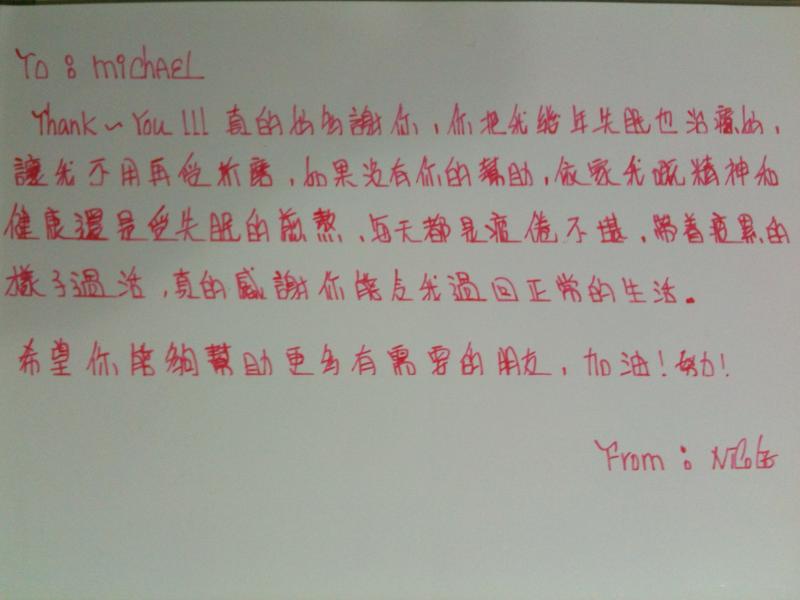 To : MiCHAEL
Thank~You !!! 真的好多謝你，你把我經年失眠也治療好，
讓我不用再受折磨，如果沒有你的幫助，依家我嘅精神和
健康還是受失眠的煎熬，每天都是疲倦不堪，帶着疲累的
樣子過活，真的感謝你能令我過回正常的生活。
希望你能夠幫助更多有需要的朋友，加油！努力！
From : Nicole